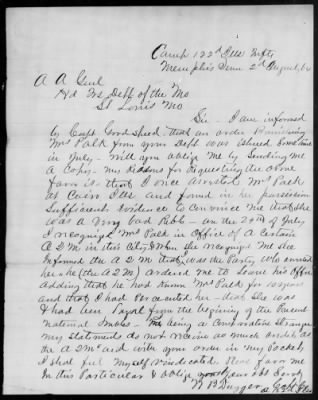 Camp 122d Ills Infty
Memphis Tenn 2d August, 64
A A Genl
Hd Qrs Dept of the Mo
St Louis Mo
Sir - I am informed
by Capt Goodshed that an order Banishing
Mrs Palk from your Dept was issued some time
in July - Will you oblige me by Sending Me
A Copy - My reasons for requesting the above
favor is that I once arrested Mrs Palk
at Cairo Ills and found in her possession
Sufficient evidence to convince me that she
was a very bad Rebb - on the 20th of July
I recognized Mrs Palk in Office of A Certain
A Q M in this City & when she recognized Me she
informed the A Q M that I was the Party who arrested
her & he (the A Q M) ordered me to Leave his Office
Adding that he had known Mrs Palk for 10 years
and that I had Persecuted her - that she was
& had been Loyal from the beginning of the Present
National troubles - Me being a Comparative Stranger
My Statements do not receive as much credit as
the A Q Ms and with your order in my Pocket
I shall feel Myself vindicated. Please favor me
in this Particular & Oblige your Obt Servt
W B Dugger